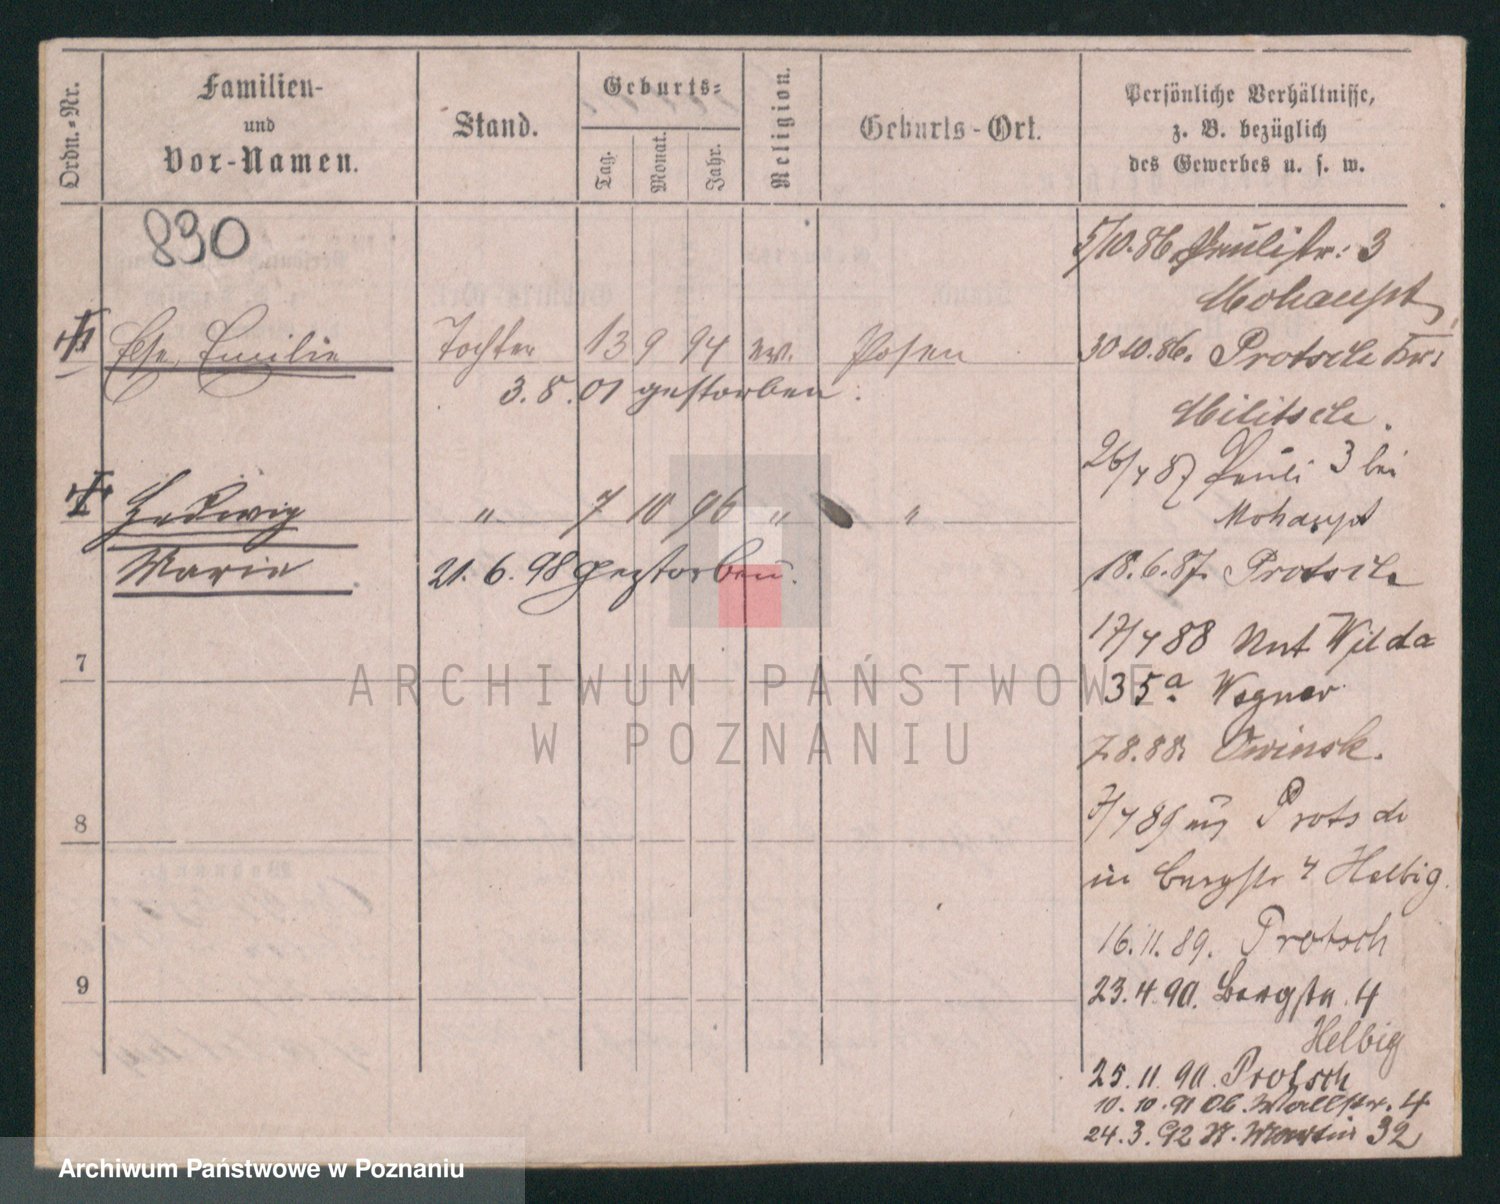 Ordn.-Nr.
Familien-
und
Vor-Namen.
Stand.
Geburts-
Tag.
Monat.
Jahr.
Religion.
Geburts-Ort.
Persönliche Verhältnisse,
z. B. bezüglich
des Gewerbes u. s. w.
830
Else, Emilie Tochter 13 9 94 ev. Posen
3.8.01 gestorben.
Hedwig " 7 10 96 " "
Marie 21.6.98 gestorben.
7
8
9
5/10.86 Paulistr: 3
Mohaupt
30 10.86. Protsch Kr:
Militsch.
26/4 87 Pauli 3 bei
Mohaupt
18.6.87. Protsch
17/4 88 Unt Wilda
35a. Wegner
7.8.88. Owinsk.
3/4 89 aus Protsch
in Bergstr 4 Helbig.
16.11.89. Protsch
23.4.90. Bergstr. 4
Helbig
25.11.90. Protsch
10.10.91 Ob. Wallstr. 4
24.3.92 St. Martin 32
ARCHIWUM PAŃSTWOWE
W POZNANIU
Archiwum Państwowe w Poznaniu